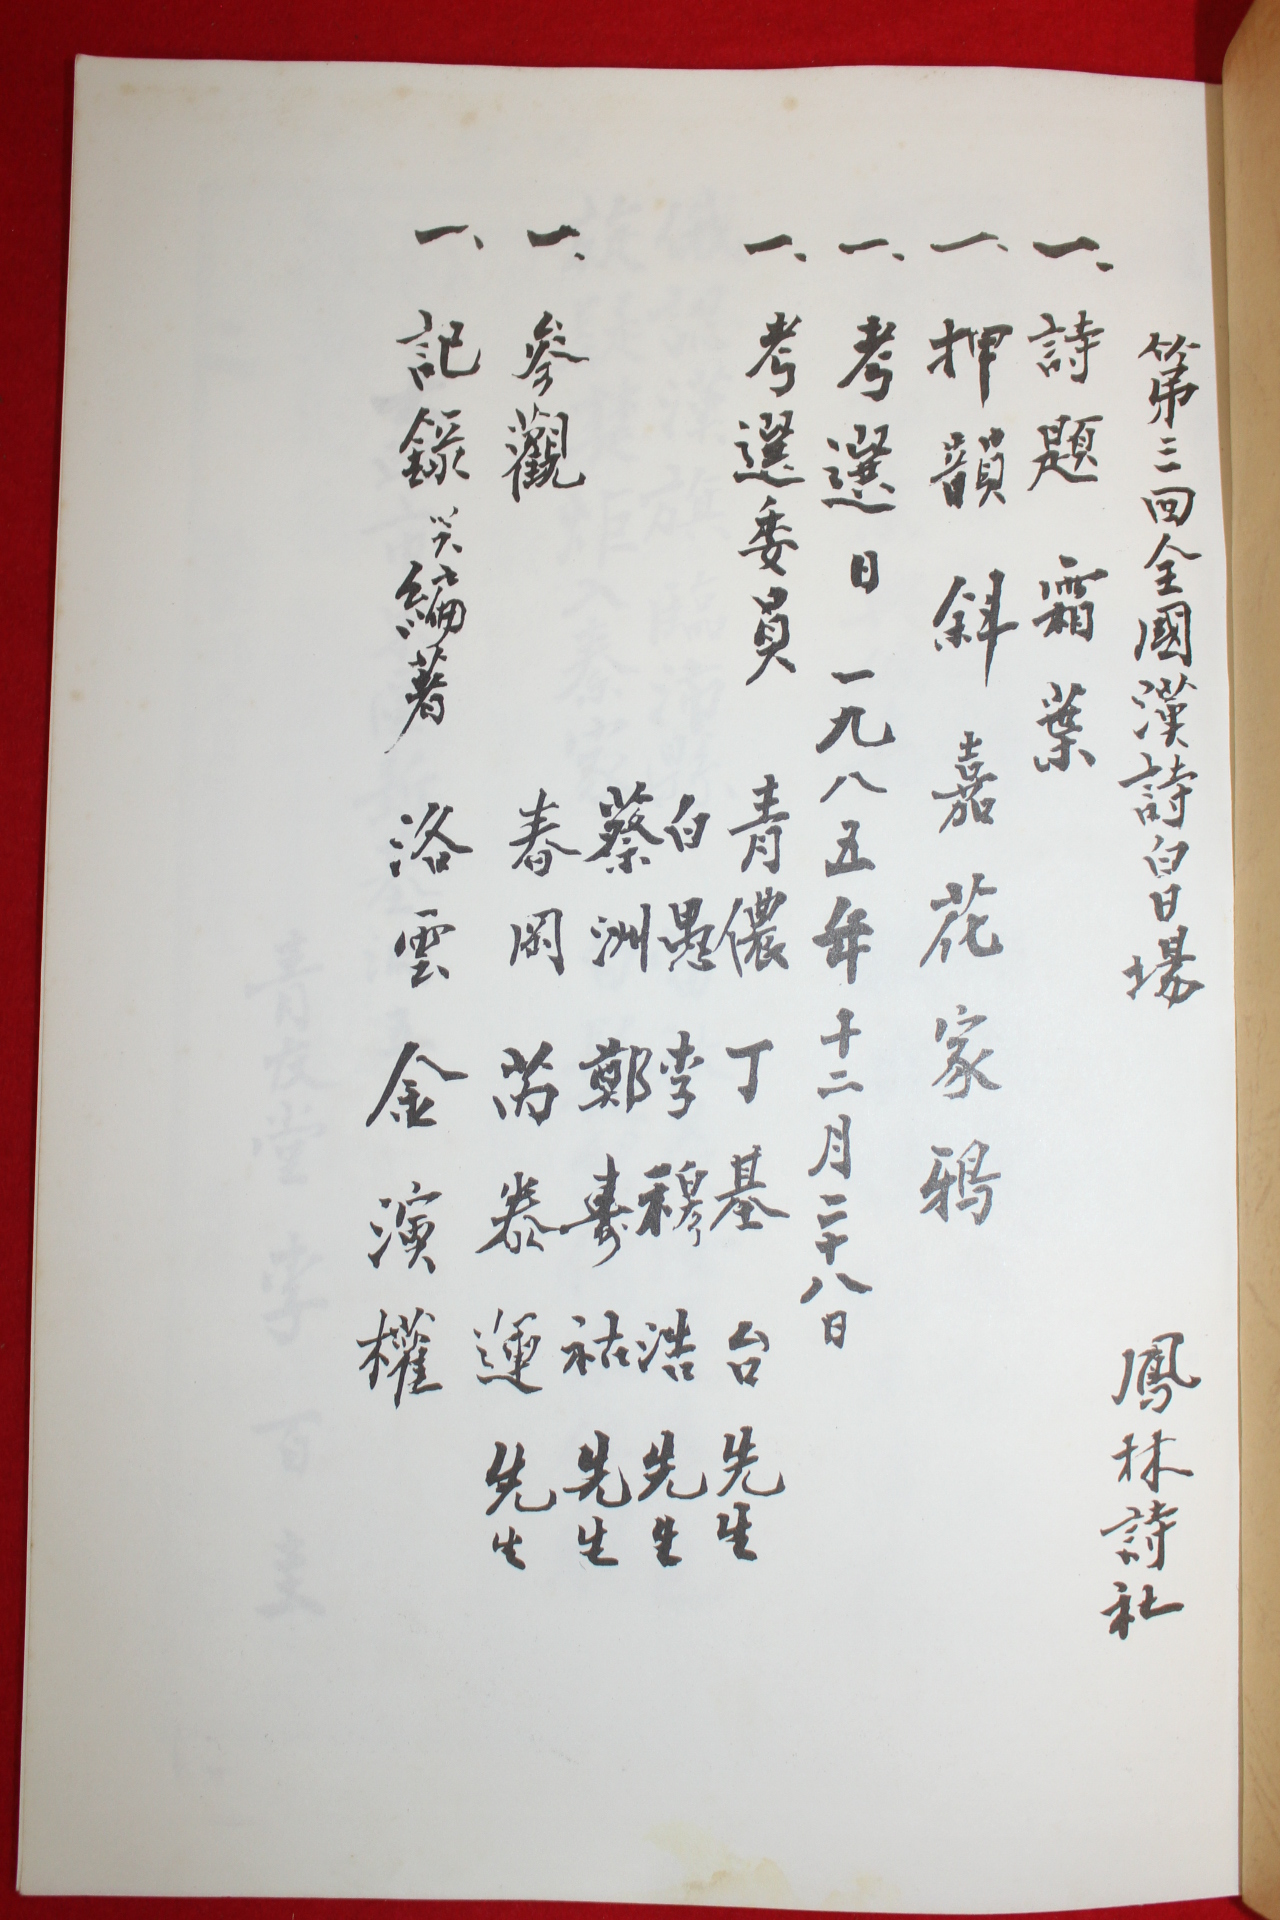 第三回全國漢詩白日場 鳳林詩社
一、詩題 霜葉
一、押韻 斜 嘉 花 家 鴉
一、考選日 一九八五年十二月二十八日
一、考選委員 青儂 丁基台先生
白愚 李穆浩先生
蔡洲 鄭壽祜先生
一、參觀 春岡 芮泰運先生
一、記錄 編著 洛雲 金演權